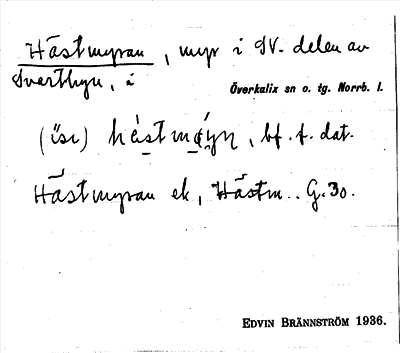 Hästmyran, myr i SV. delen av
Svartbyn, i
Överkalix sn o. tg. Norrb. l.
(isr) hestmǿyn, bf. f. dat.
Hästmyran ek, Hästm.. G.30.
EDVIN BRÄNNSTRÖM 1936.